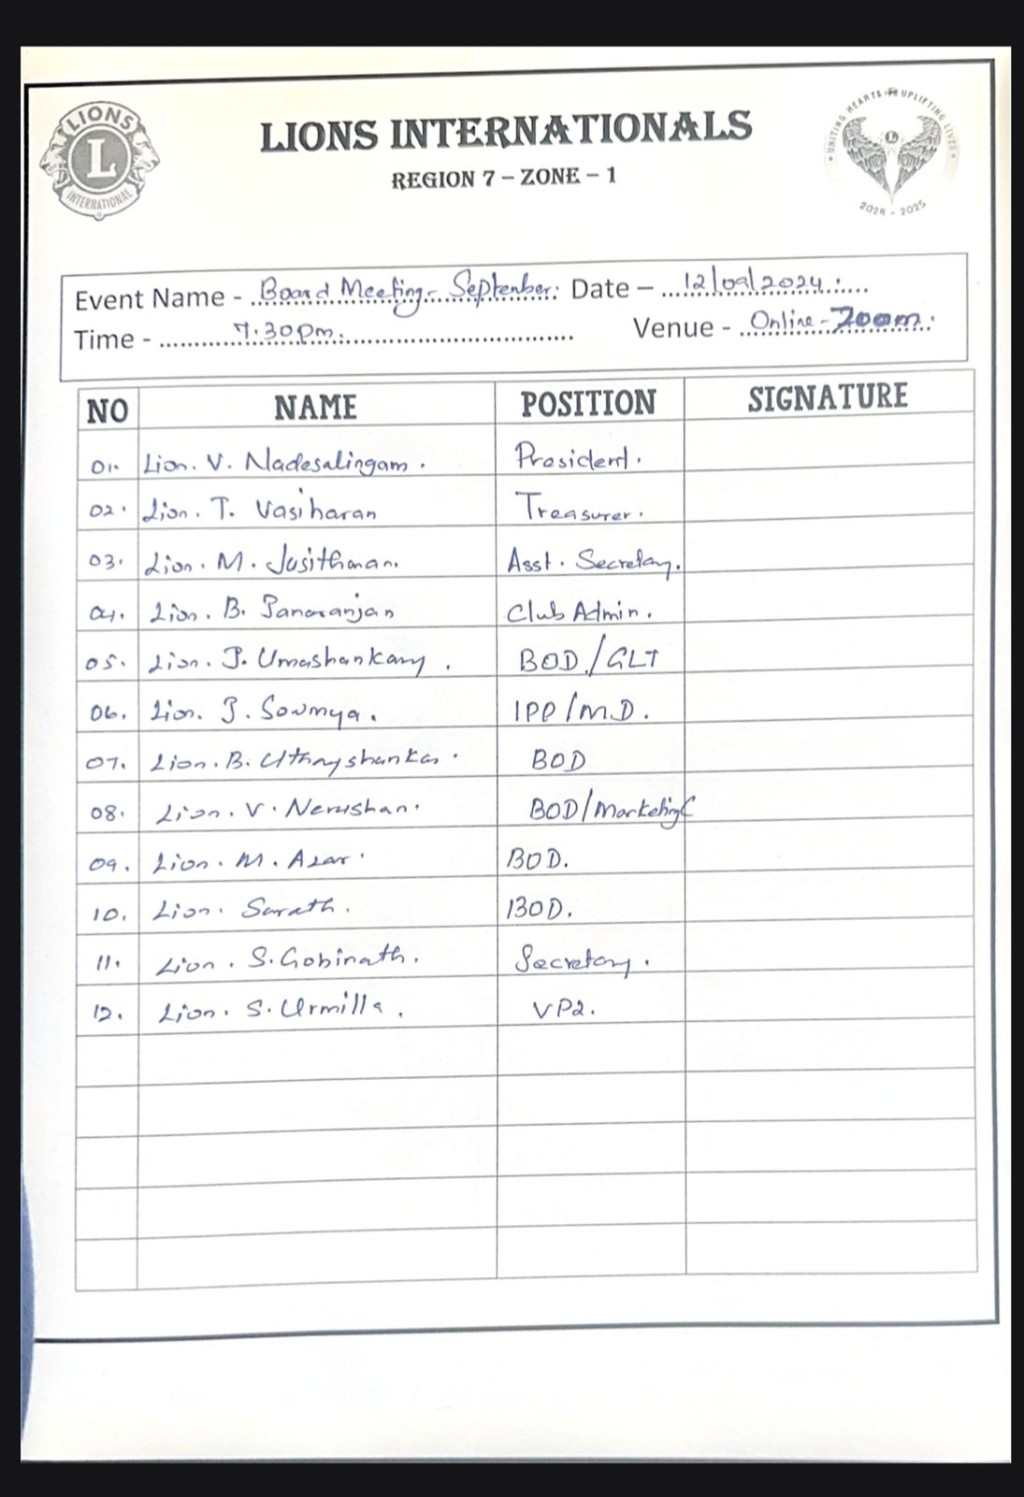 LIONS
L
INTERNATIONAL
LIONS INTERNATIONALS
REGION 7 – ZONE – 1
UNITING HEARTS UPLIFTING LIVES
2024 - 2025
Event Name - Board Meeting - September. Date – 12/09/2024.
Time - 7.30pm. Venue - Online - Zoom.
NO NAME POSITION SIGNATURE
01. Lion. V. Nadesalingam. President.
02. Lion. T. Vasiharan Treasurer.
03. Lion. M. Jusithman. Asst. Secretary.
04. Lion. B. Panaranjan Club Admin.
05. Lion. J. Umashankary. BOD/GLT
06. Lion. J. Sowmya. IPP/M.D.
07. Lion. B. Uthayshankar. BOD
08. Lion. V. Nerushan. BOD/MarketingC
09. Lion. M. Azar. BOD.
10. Lion. Sarath. BOD.
11. Lion. S. Gobinath. Secretary.
12. Lion. S. Urmilla. VP2.